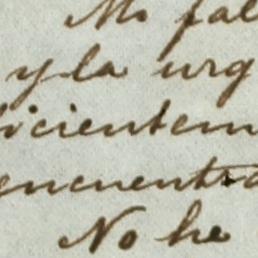 Mi fal
y la urg
icientem
encuentra
No he